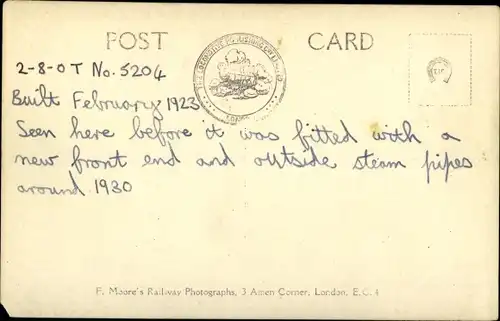 POST CARD
2-8-0T No. 5204
Built February 1923
Seen here before it was fitted with a
new front end and outside steam pipes
around 1930
F. Moore's Railway Photographs, 3 Amen Corner, London, E.C.4